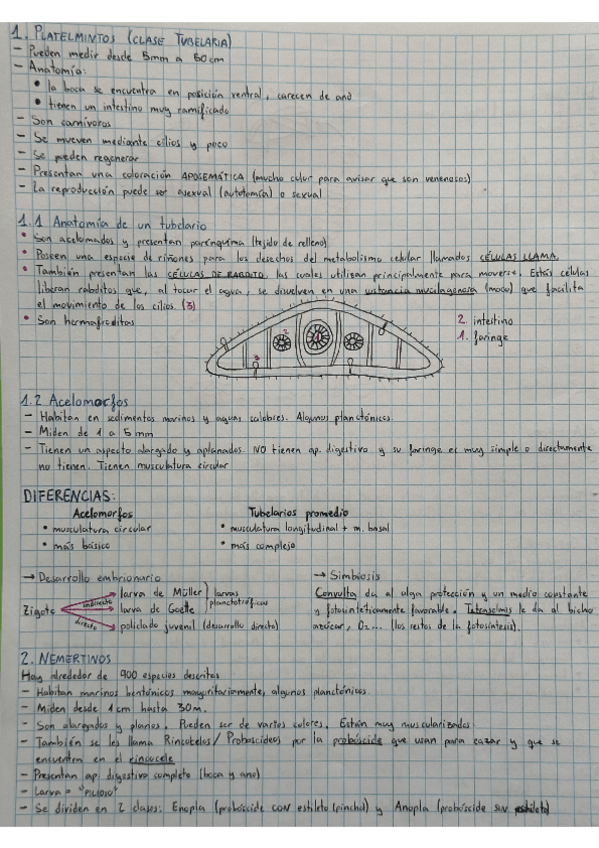 1. PLATELMINTOS (CLASE TUBELARIA)
- Pueden medir desde 5mm a 60cm
- Anatomía:
• la boca se encuentra en posición ventral, carecen de ano
• tienen un intestino muy ramificado
- Son carnívoros
- Se mueven mediante cilios y poco
- Se pueden regenerar
- Presentan una coloración APOSEMÁTICA (mucho color para avisar que son venenosos)
- La reproducción puede ser asexual (autotomía) o sexual
1.1 Anatomía de un tubelario
• Son acelomados y presentan parénquima (tejido de relleno)
• Poseen una especie de riñones para los desechos del metabolismo celular llamados CÉLULAS LLAMA.
• También presentan las CÉLULAS DE RABDITO, las cuales utilizan principalmente para moverse. Estas células
liberan rabditos que, al tocar el agua, se disuelven en una sustancia mucilagenosa (moco) que facilita
el movimiento de los cilios. (3)
• Son hermafroditas
2. intestino
1. faringe
2
1
3
1.2 Acelomorfos
- Habitan en sedimentos marinos y aguas salobres. Algunos planctónicos.
- Miden de 1 a 5 mm
- Tienen un aspecto alargado y aplanados. NO tienen ap. digestivo y su faringe es muy simple o directamente
no tienen. Tienen musculatura circular
DIFERENCIAS:
Acelomorfos Tubelarios promedio
• musculatura circular • musculatura longitudinal + m. basal
• más básico • más complejo
→ Desarrollo embrionario → Simbiosis
Zigoto indirecto directo
larva de Müller
larva de Goette
larvas planctotróficas
policlado juvenil (desarrollo directo)
Convulta da al alga protección y un medio constante
y fotosintéticamente favorable. Tetraselmis le da al bicho
azúcar, O2... (los restos de la fotosíntesis).
2. NEMERTINOS
Hay alrededor de 900 especies descritas
- Habitan marinos bentónicos mayoritariamente, algunos planctónicos.
- Miden desde 1cm hasta 30m.
- Son alargados y planos. Pueden ser de varios colores. Están muy muscularizados.
- También se les llama Rincotelos/Proboscideos por la probóscide que usan para cazar y que se
encuentra en el rincocele
- Presentan ap. digestivo completo (boca y ano)
- Larva = "PILIDIO"
- Se dividen en 2 clases: Enopla (probóscide CON estilete (pincho)) y Anopla (probóscide SIN estilete)